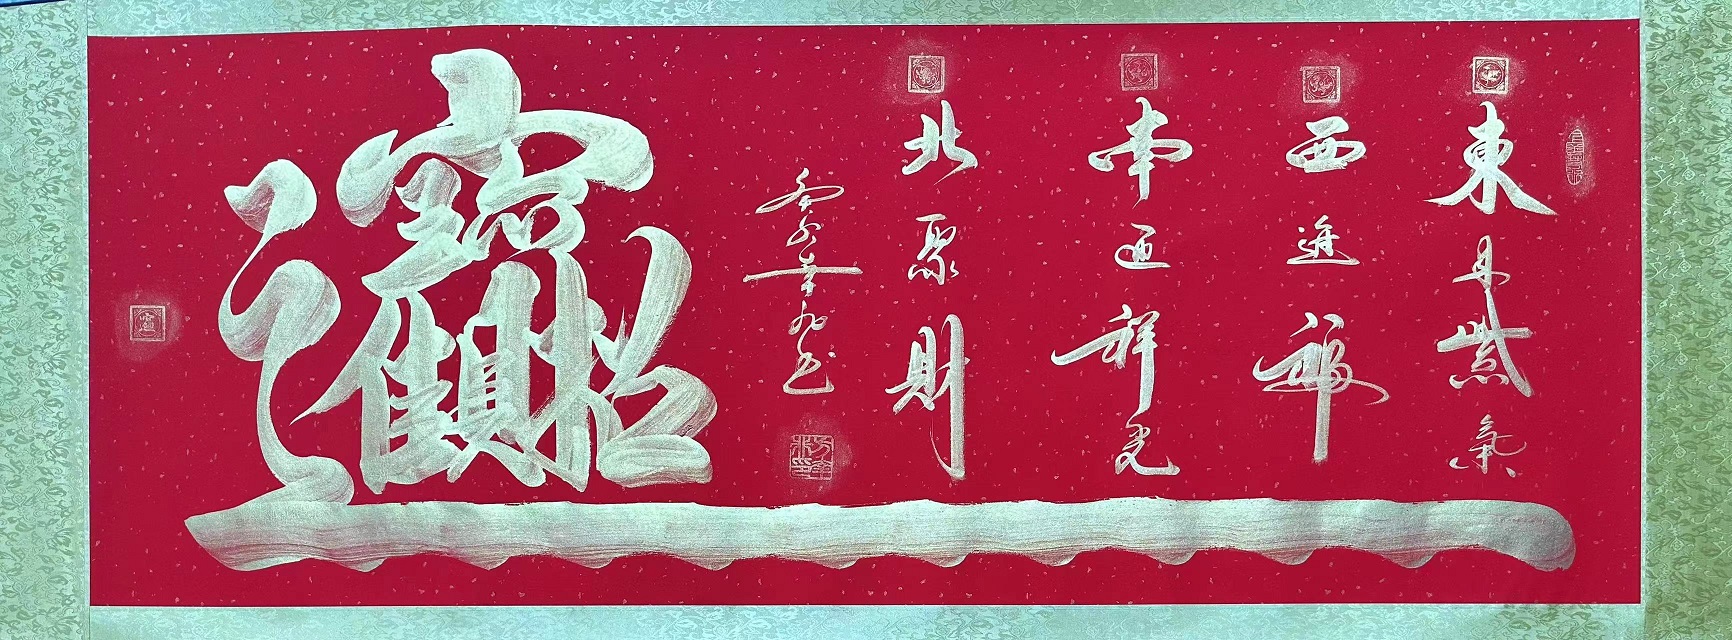 東昇紫氣
西進福
南迎祥光
北聚財
招財進寶